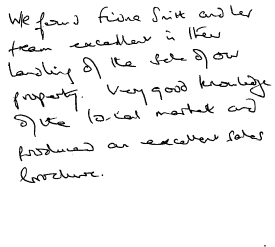 We found Fiona and her
team excellent in their
handling of the sale of our
property. Very good knowledge
of the local market and
produced an excellent sales
brochure.